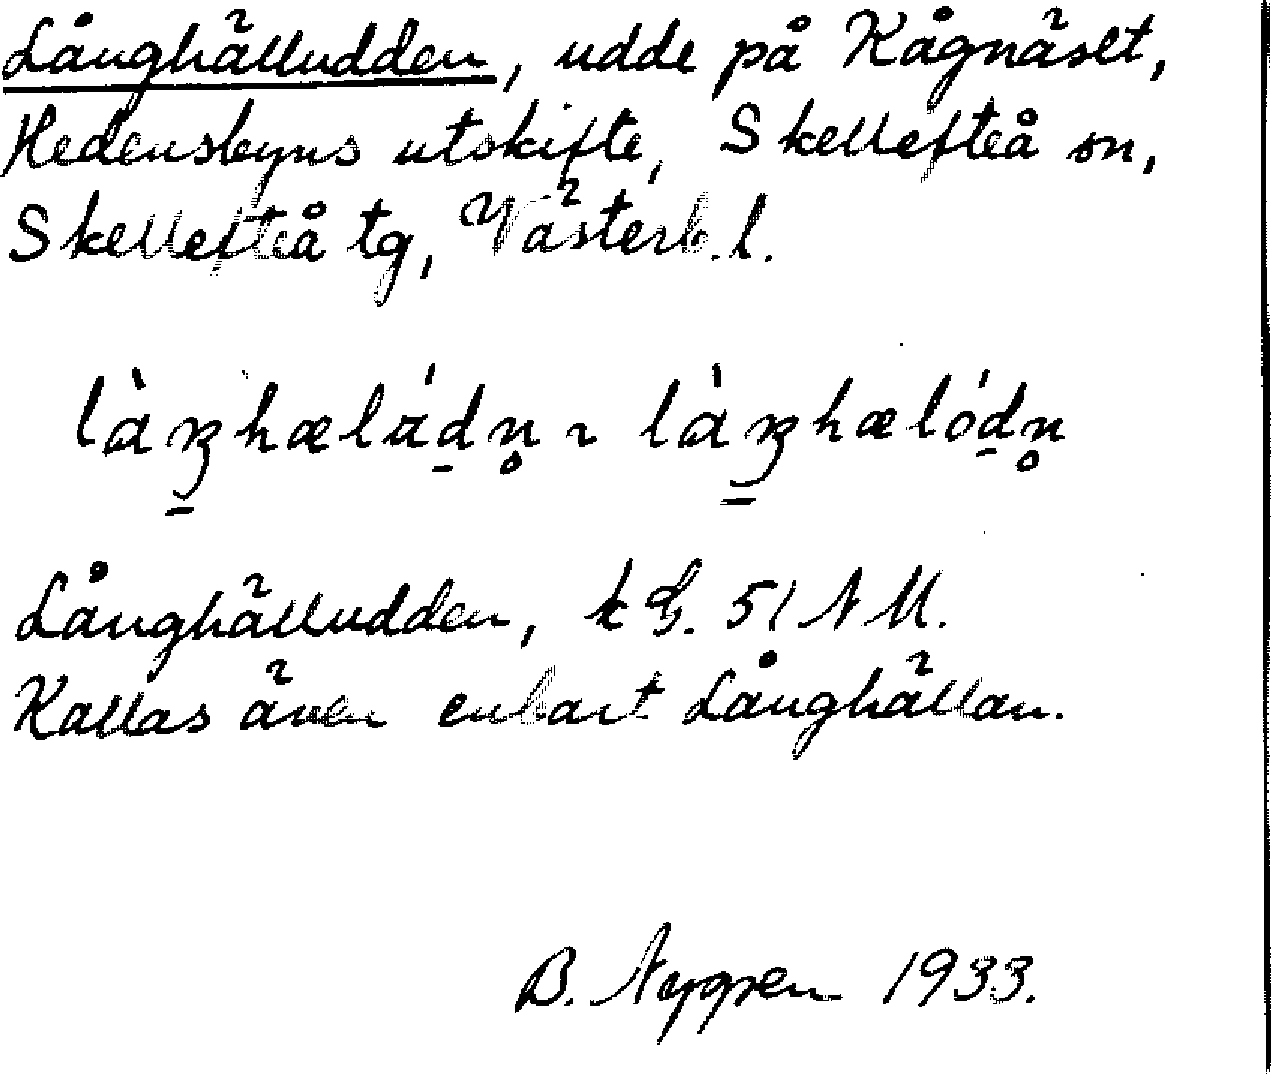 Långhälludden, udde på Kågnäset,
Hedensbyns utskifte, Skellefteå sn,
Skellefteå tg, Västerb. l.
Långhälludden, k G. 51 N M.
Kallas även enbart Långhällan.
B. Nygren 1933.